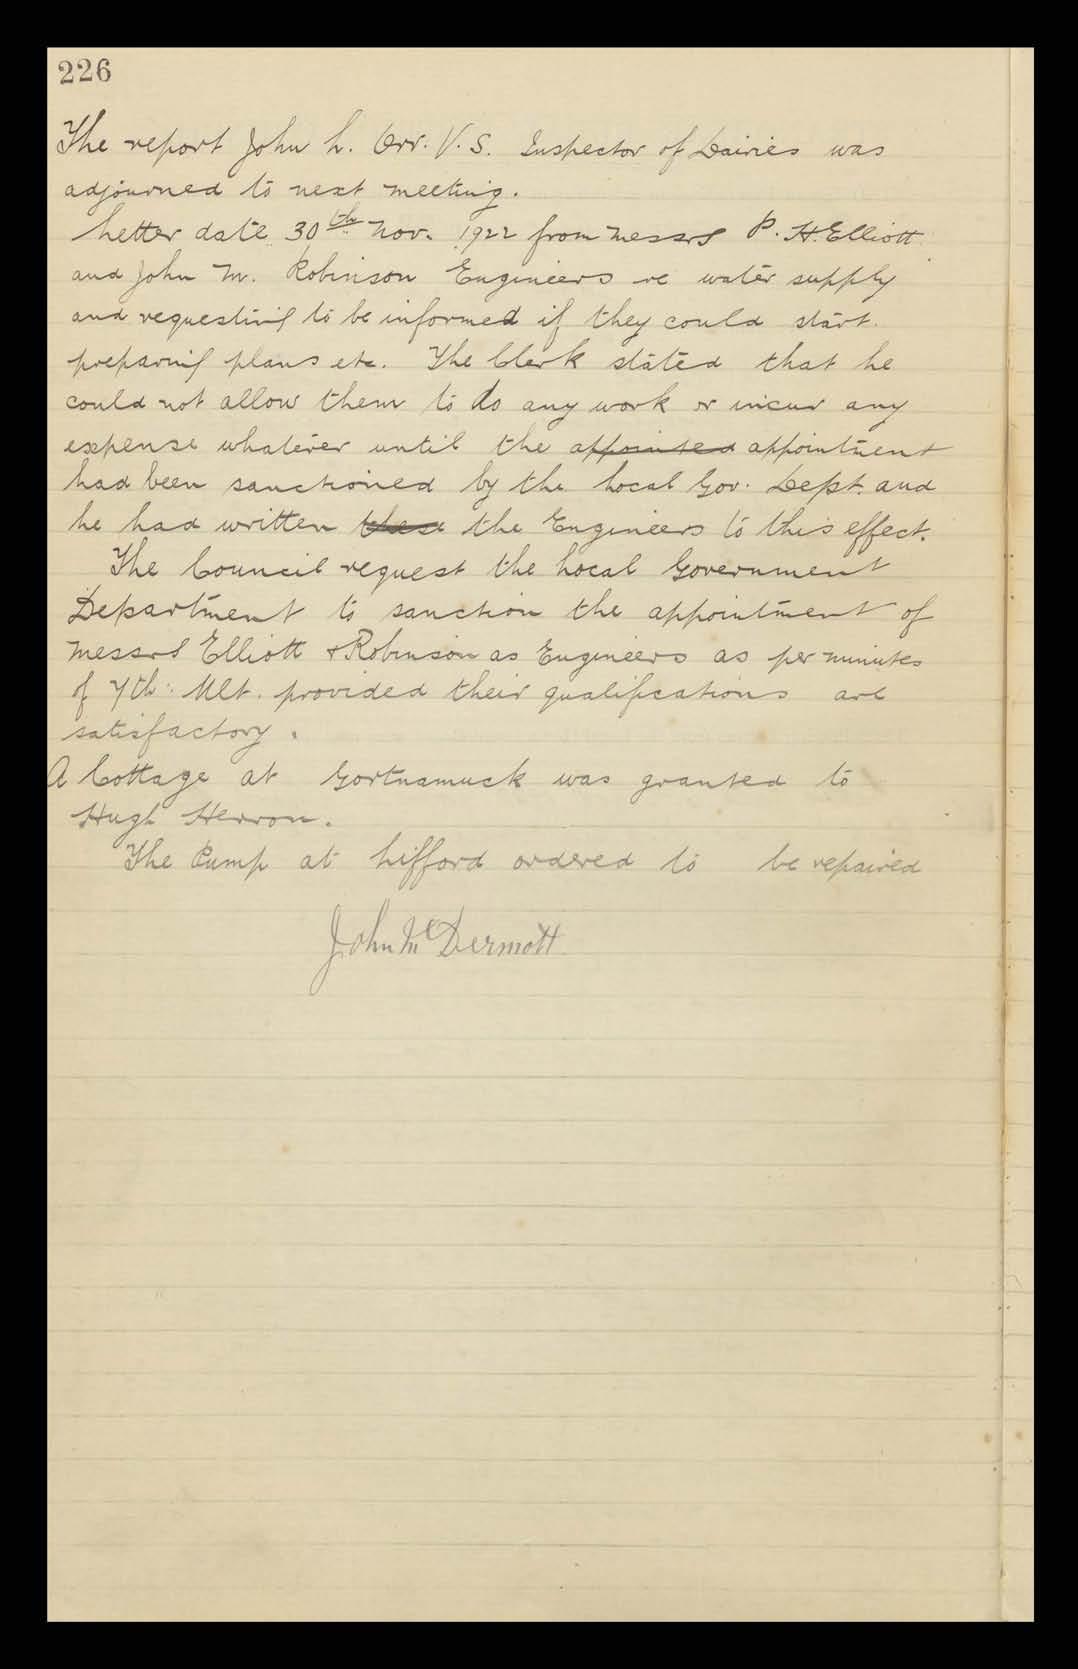 226
The report John L. Orr. V.S. Inspector of Dairies was
adjourned to next meeting.
Letter date 30th Nov. 1922 from Messrs P. H. Elliott
and John M. Robinson Engineers re water supply
and requesting to be informed if they could start
preparing plans etc. The Clerk stated that he
could not allow them to do any work or incur any
expense whatever until the appointed appointment
had been sanctioned by the Local Gov. Dept. and
he had written these the Engineers to this effect.
The Council request the Local Government
Department to sanction the appointment of
Messrs Elliott & Robinson as Engineers as per minutes
of 7th Ult. provided their qualifications are
satisfactory.
A Cottage at Gortnamuck was granted to
Hugh Herron.
The Pump at Lifford ordered to be repaired
John McDermott